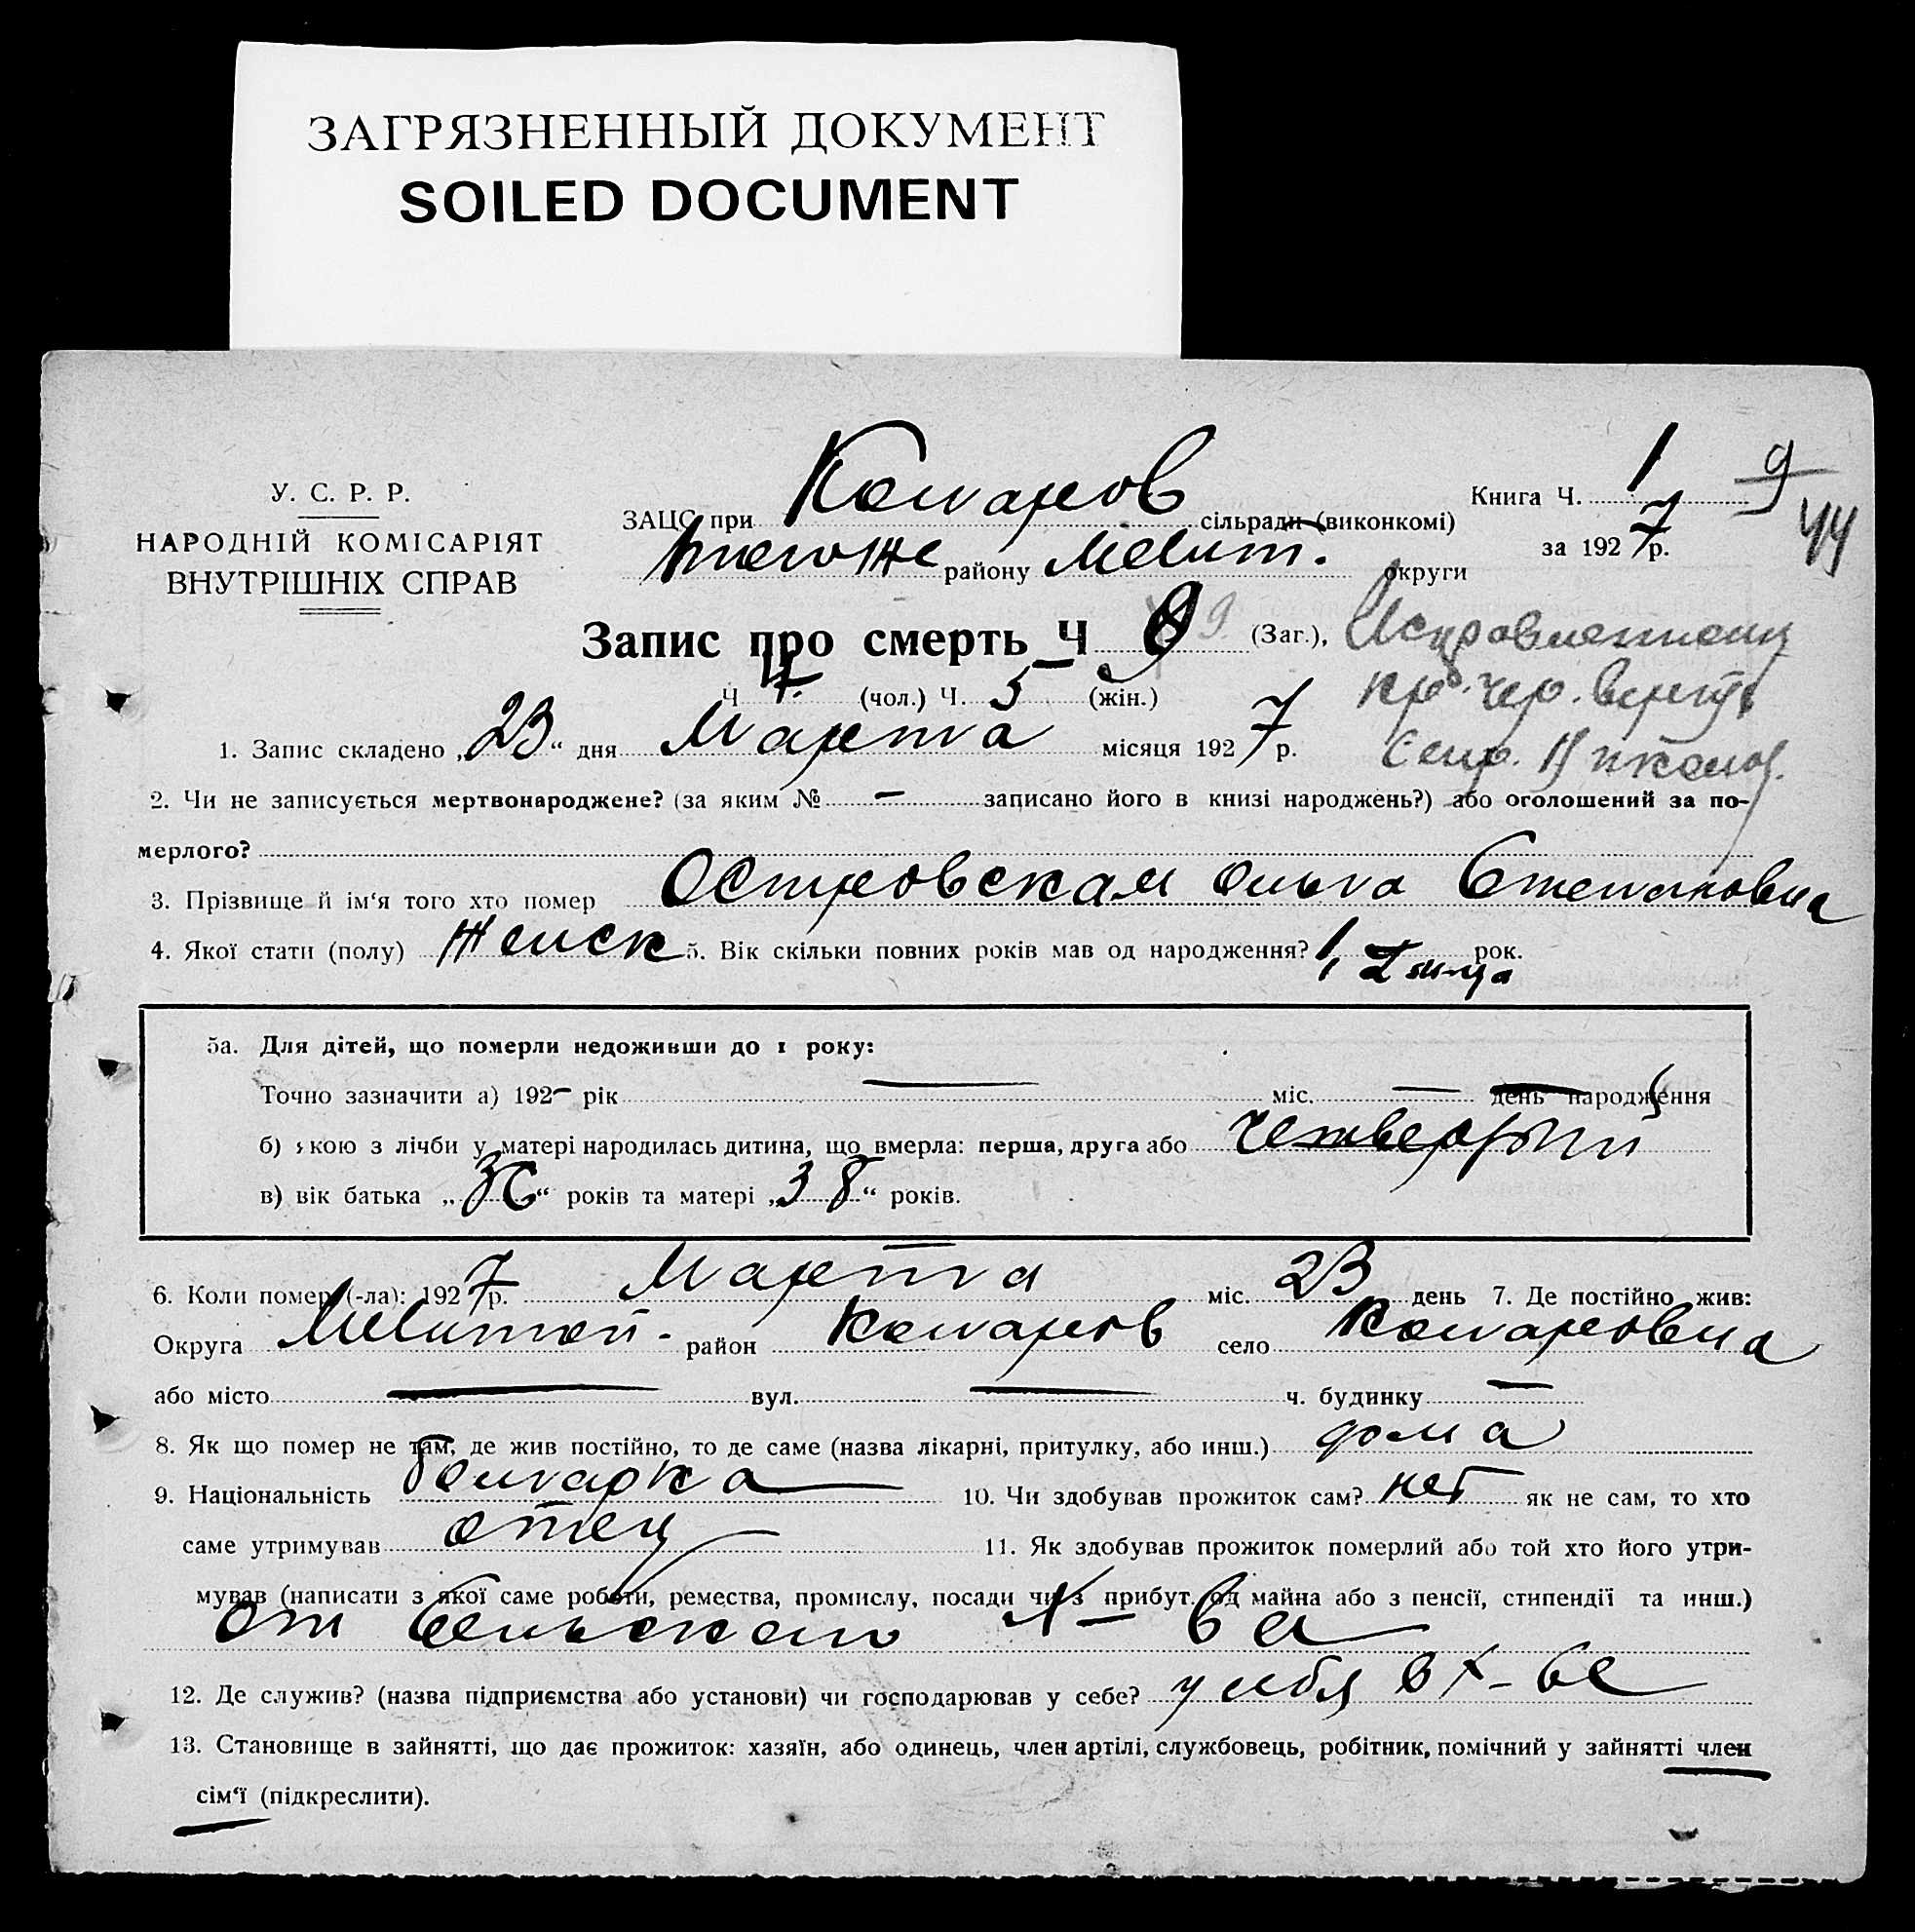 ЗАГРЯЗНЕННЫЙ ДОКУМЕНТ
SOILED DOCUMENT
У. С. Р. Р.
НАРОДНІЙ КОМІСАРІЯТ
ВНУТРІШНІХ СПРАВ
ЗАЦС при Комаров сільради (виконкомі)
Книга Ч. 1
9
44
тогоже району Мелит. округи
за 1927 р.
Запис про смерть Ч 9 9. (Заг.),
Исправленному
Ч 4. (чол.) Ч. 5 (жін.)
1. Запис складено „23“ дня Марта місяця 1927 р.
Секр.
2. Чи не записується мертвонароджене? (за яким № — записано його в книзі народжень?) або оголошений за по-
мерлого?
3. Прізвище й ім‘я того хто помер Островская Ольга Степановна
4. Якої стати (полу) Женск 5. Вік скільки повних років мав од народження? 1, 2 м-ца рок.
5а. Для дітей, що померли недоживши до 1 року:
Точно зазначити а) 192– рік — міс. — день народження
б) якою з лічби у матері народилась дитина, що вмерла: перша, друга або четвертый
в) вік батька „36“ років та матері „38“ років.
6. Коли помер (-ла): 1927 р. Марта міс. 23 день 7. Де постійно жив:
Округа Мелитоп. район Комаров село Комаровка
або місто — вул. — ч. будинку —
8. Як що помер не там, де жив постійно, то де саме (назва лікарні, притулку, або инш.) дома
9. Національність болгарка 10. Чи здобував прожиток сам? нет як не сам, то хто
саме утримував отец 11. Як здобував прожиток померлий або той хто його утри-
мував (написати з якої саме роботи, ремества, промислу, посади чи з прибут. од майна або з пенсії, стипендії та инш.)
от сельского х-ва
12. Де служив? (назва підприємства або установи) чи господарював у себе? у себя в х-ве
13. Становище в зайнятті, що дає прожиток: хазяїн, або одинець, член артілі, службовець, робітник, помічний у зайнятті член
сім‘ї (підкреслити).